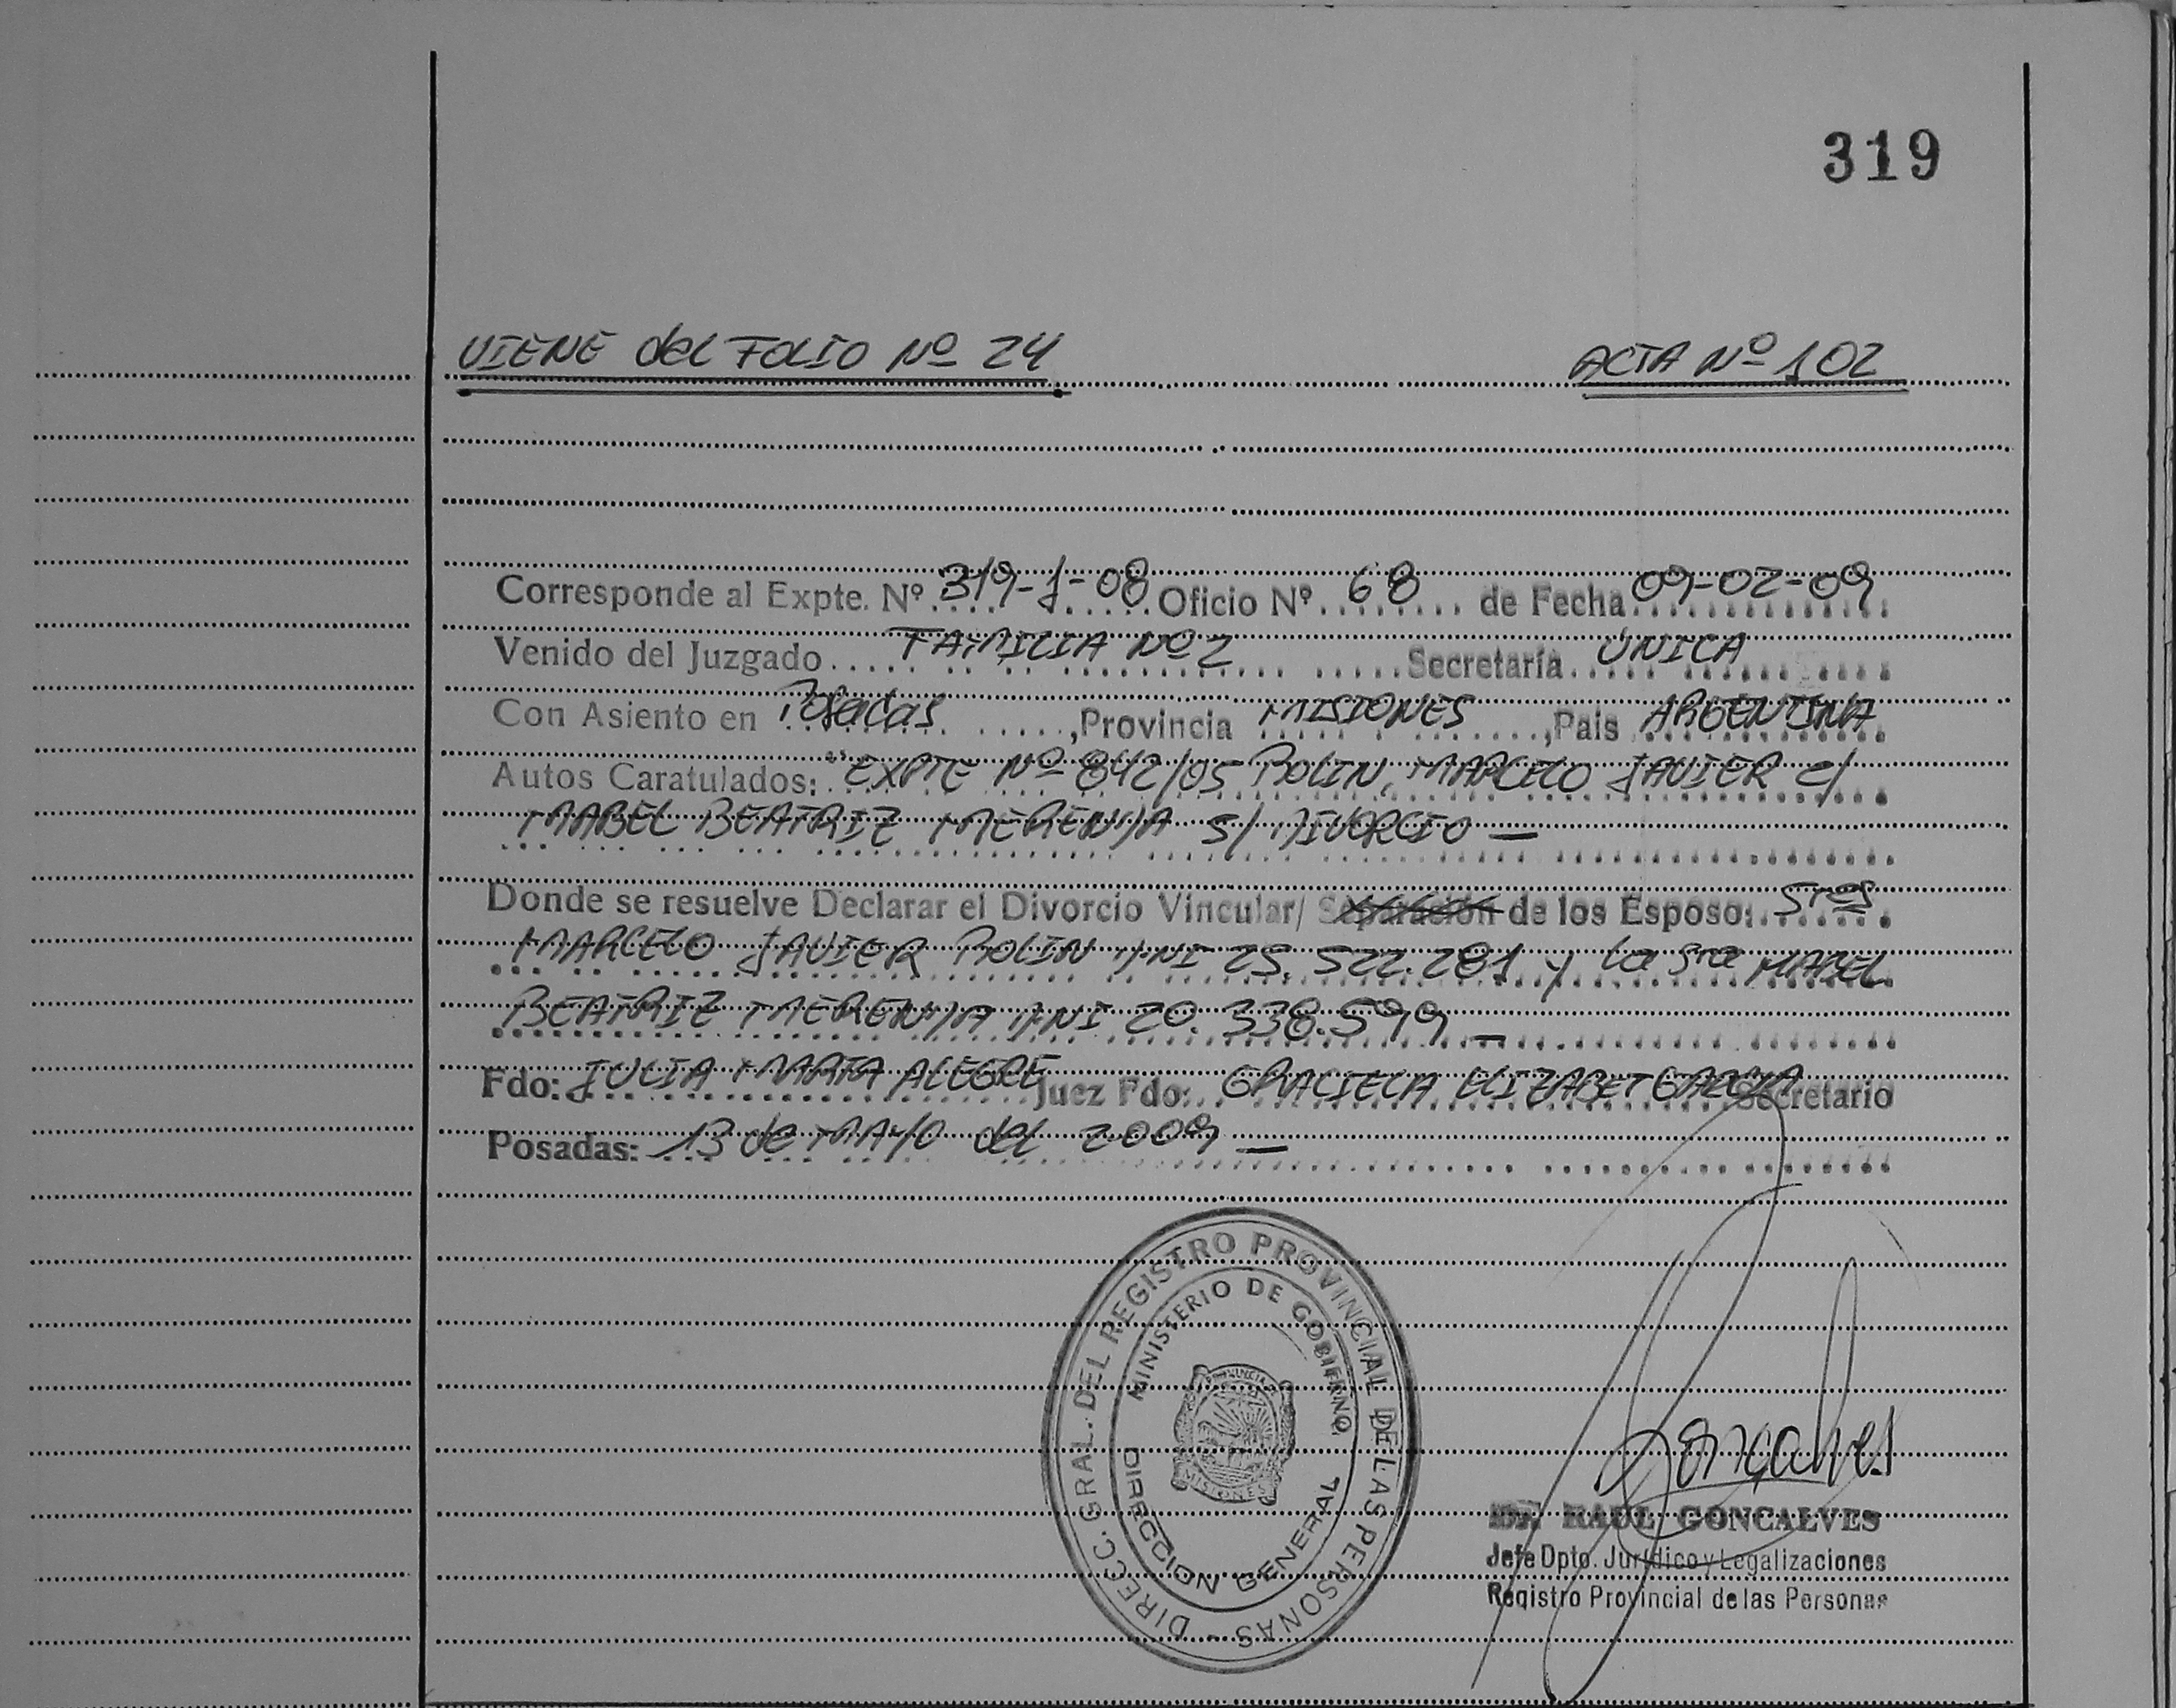 319
VIENE del FOLIO Nº 24 ACTA Nº 102
Corresponde al Expte. Nº 319-J-08 Oficio Nº 68 de Fecha 09-02-09
Venido del Juzgado FAMILIA Nº 2 Secretaría UNICA
Con Asiento en Posadas, Provincia MISIONES, País ARGENTINA
Autos Caratulados: "EXPTE Nº 842/05 ROLIN, MARCELO JAVIER c/
MABEL BEATRIZ MERENDA S/ DIVORCIO —
Donde se resuelve Declarar el Divorcio Vincular/ Separación de los Esposo: Sres
MARCELO JAVIER ROLIN DNI 25.522.281 y la Sra MABEL
BEATRIZ MERENDA DNI 20.338.599 —
Fdo: JULIA MARTA ALEGRE Juez Fdo: GRACIELA ELIZABET GARCIA Secretario
Posadas: 13 de MAYO del 2009 —
DIRECC. GRAL. DEL REGISTRO PROVINCIAL DE LAS PERSONAS
MINISTERIO DE GOBIERNO
PROVINCIA
MISIONES
DIRECCION GENERAL
Goncalves
RAUL GONCALVES
Jefe Dpto. Jurídico y Legalizaciones
Registro Provincial de las Personas